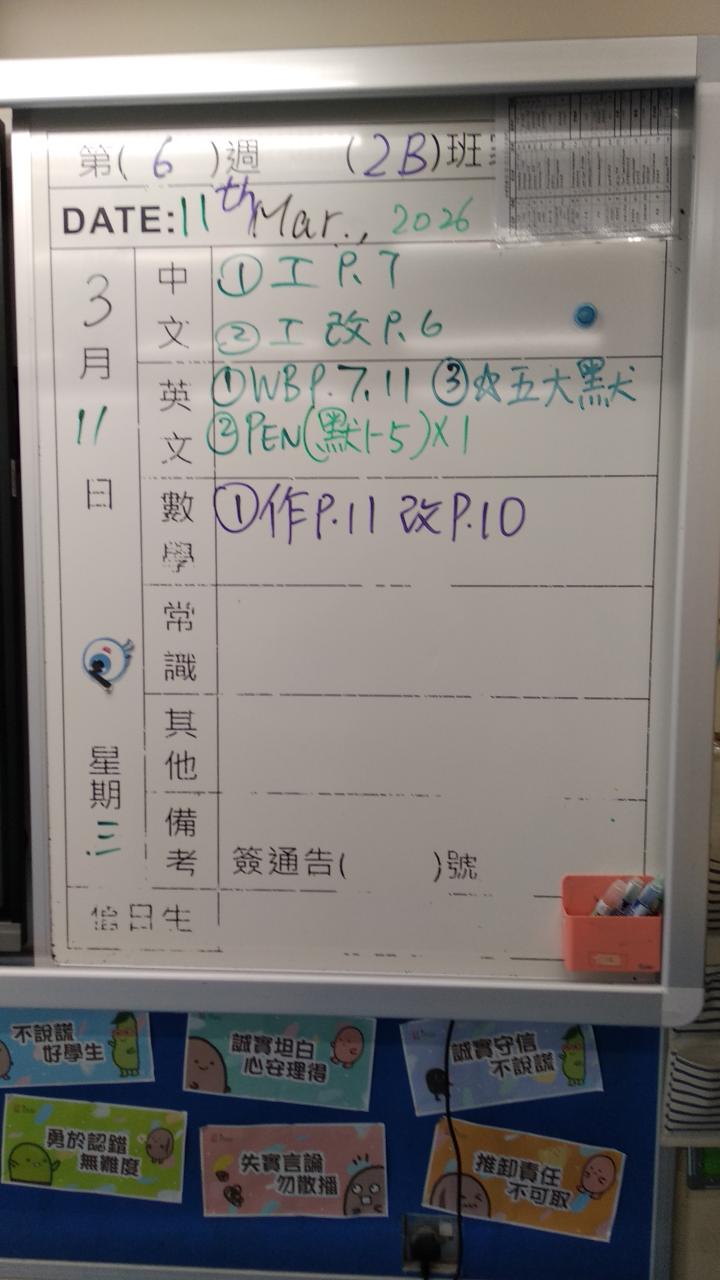 第( 6 )週 (2B)班
DATE:11th Mar., 2026
3月11日
星期三
中文
①工 P.7
②工 改 P.6
英文
①WB P.7,11 ③☆五大默
②PEN(默1-5)X1
數學
①作P.11 改P.10
常識
其他
備考
簽通告( )號
值日生
不說謊
好學生
誠實坦白
心安理得
誠實守信
不說謊
勇於認錯
無難度
失實言論
勿散播
推卸責任
不可取